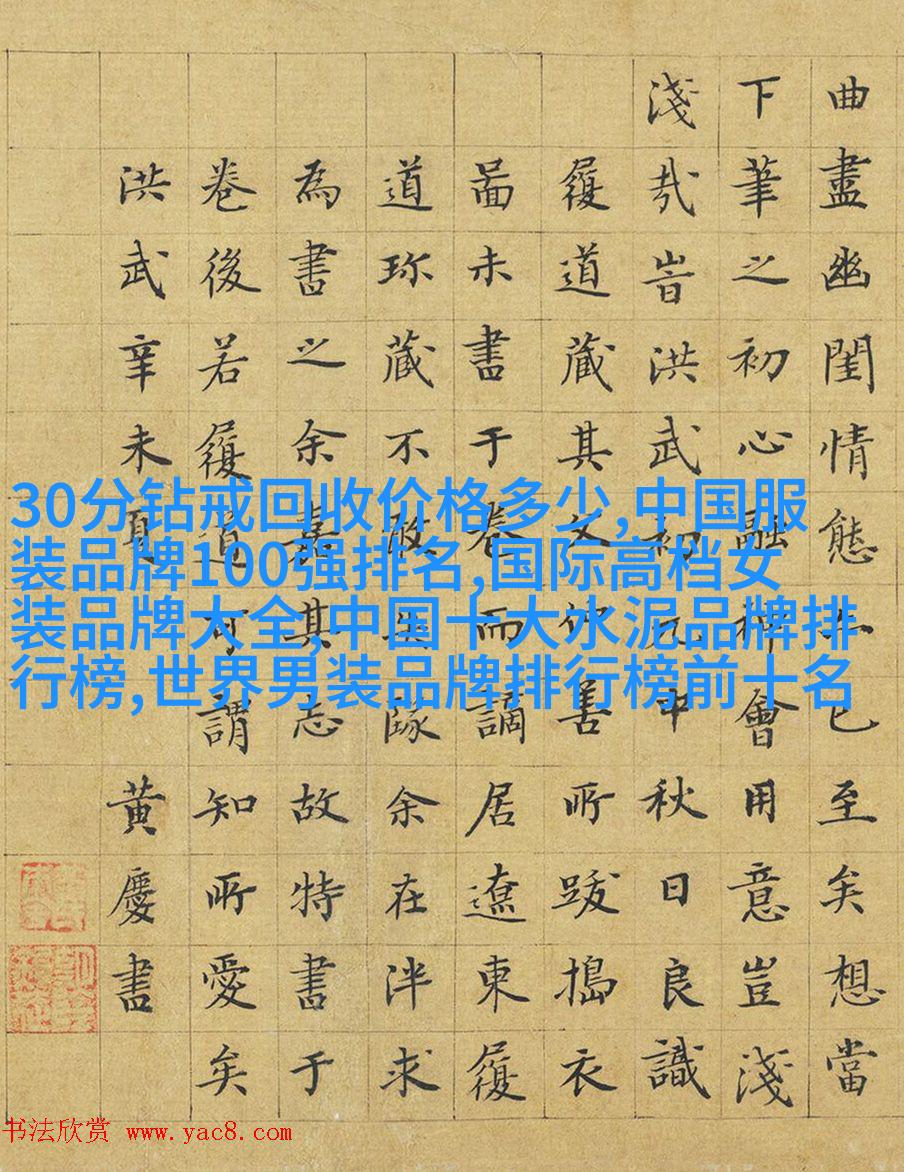 曲盡幽閨情態已至矣想當
下筆之初心融神會用意豈淺
淺哉旹洪武初元中秋日良識
履道藏其文善所跋搗衣
啚未書于卷而謫居遼東履
道珎藏不敢失隊余在泮求
為書之余嘉其志故特書于
卷後若履道可謂知所愛矣
洪武辛未夏
黃慶書
30分钻戒回收价格多少,中国服
装品牌100强排名,国际高档女
装品牌大全,中国十大水泥品牌排
行榜,世界男装品牌排行榜前十名
书法欣赏 www.yac8.com